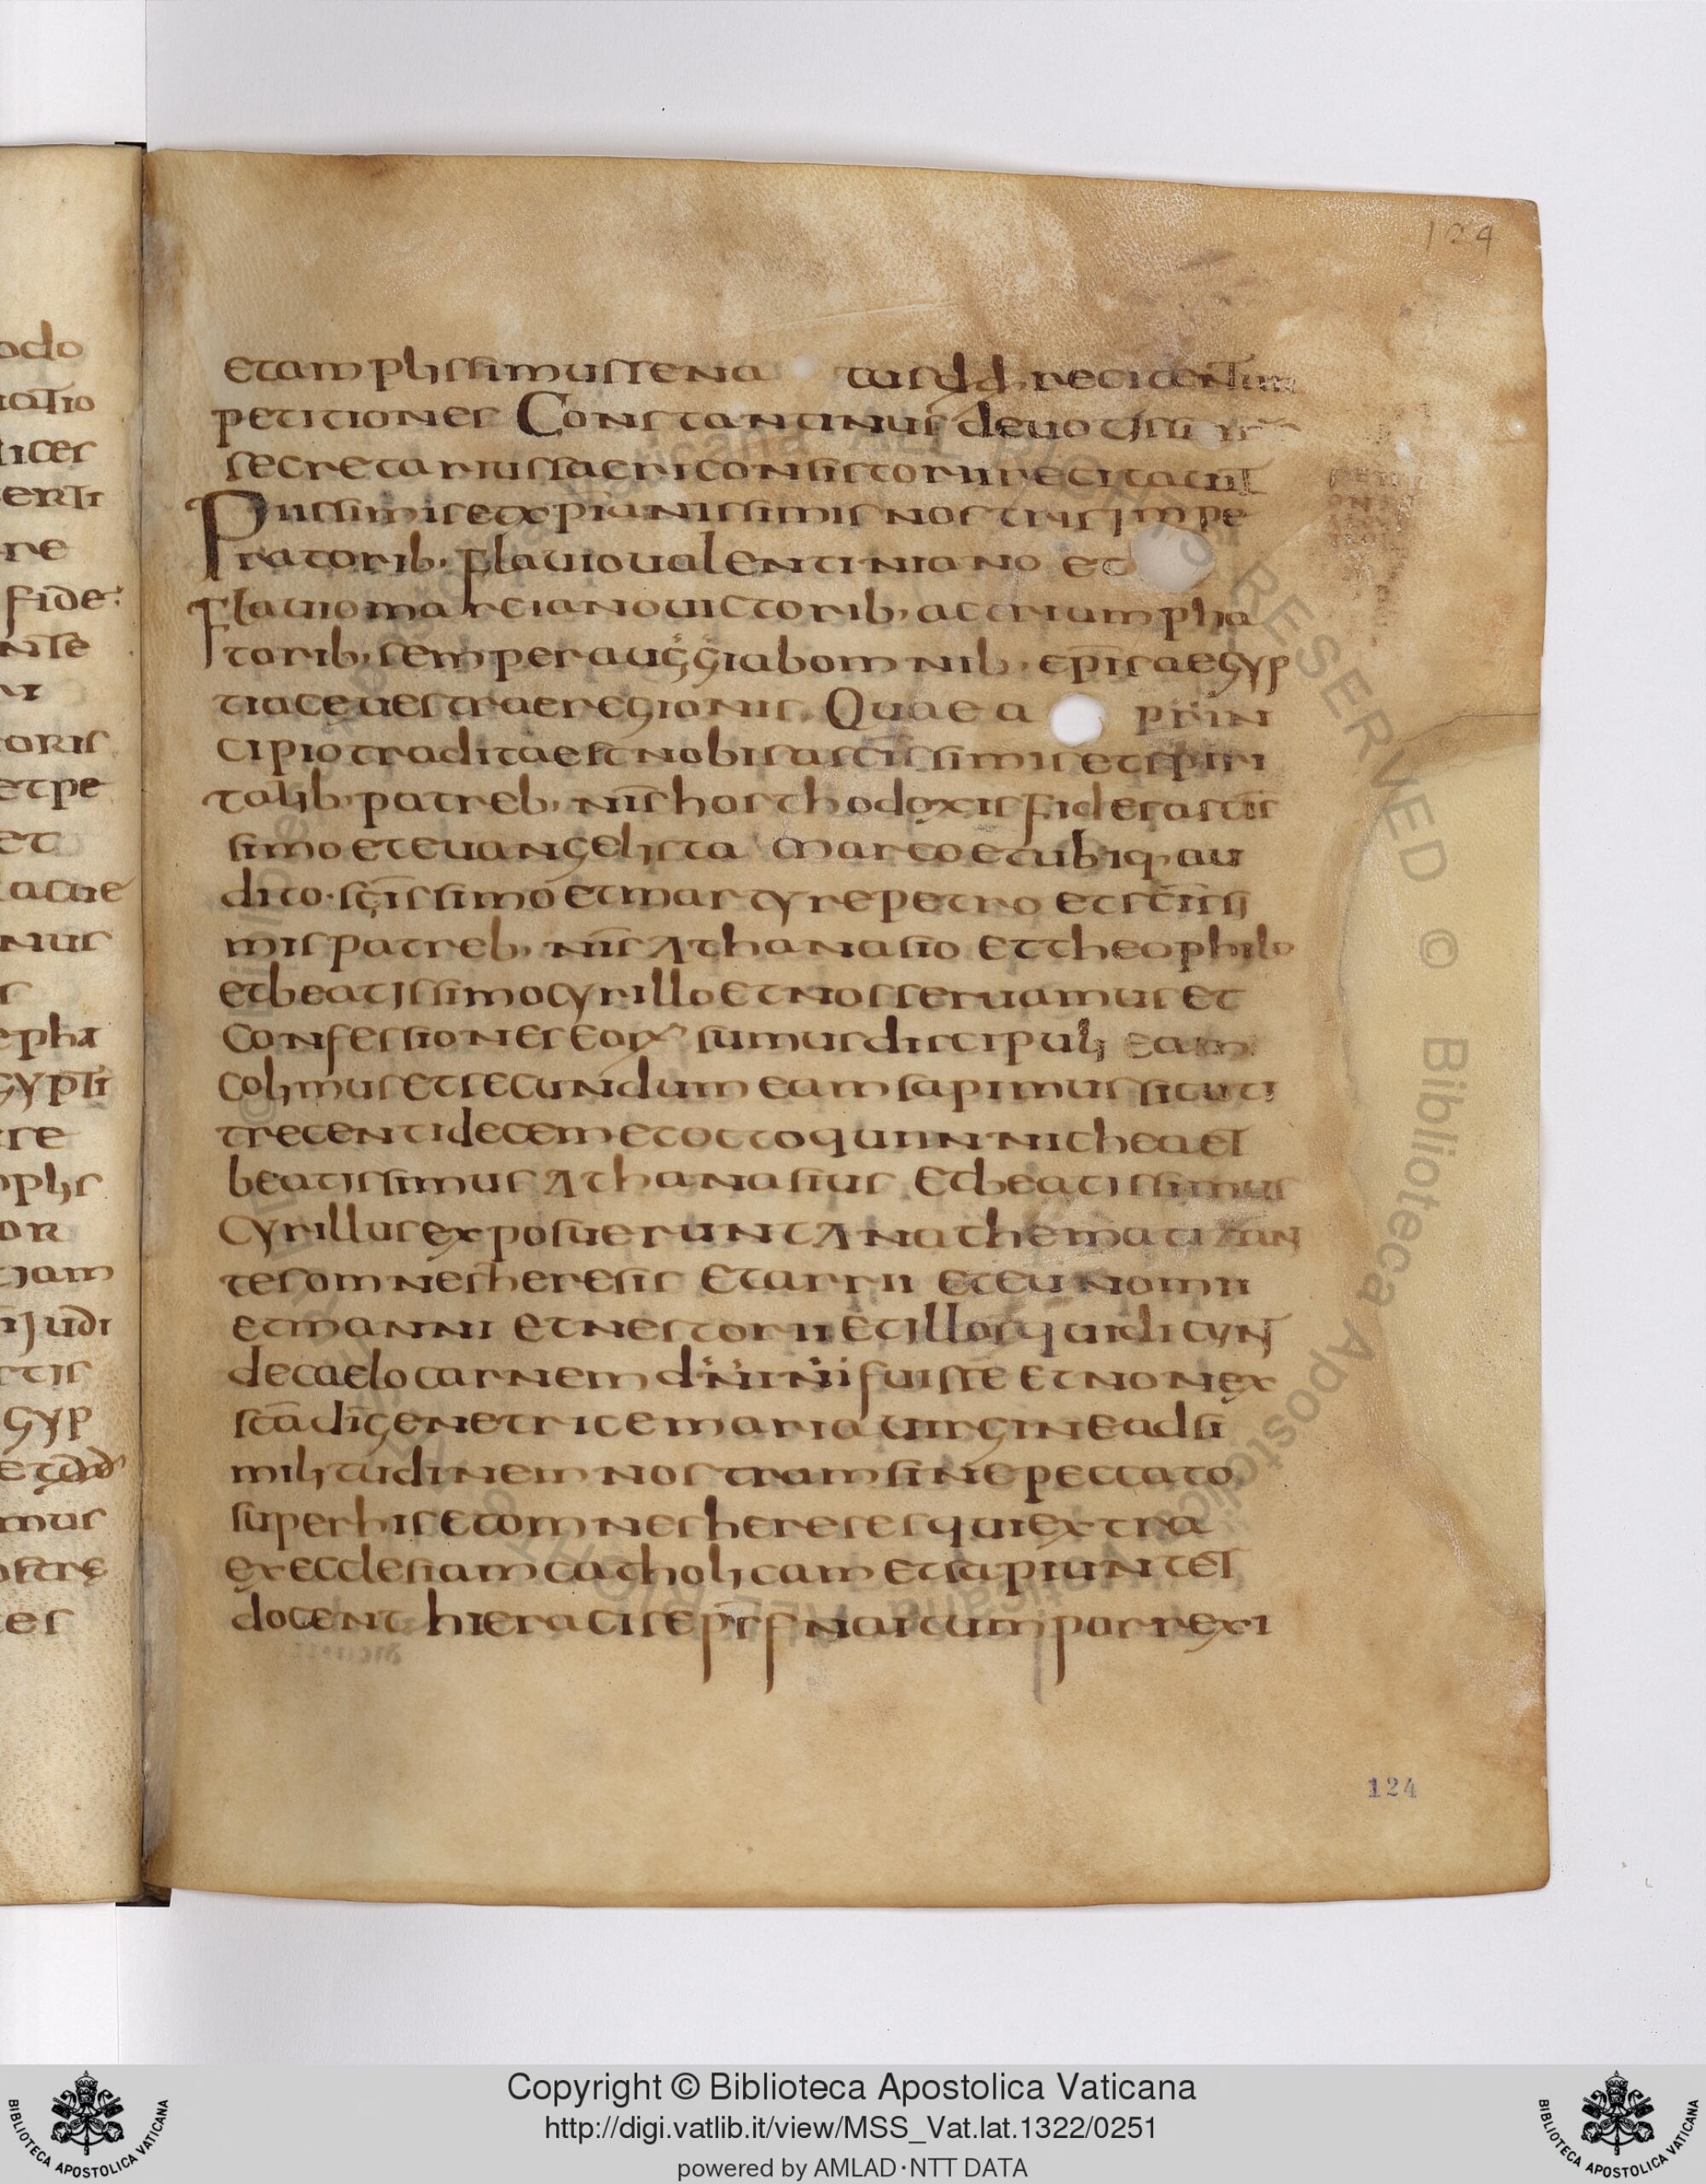 124
et amplissimus senatus dd. recitentur
petitiones Constantinus devotissi
secretarius sacri consistorii recitauit
Piissimis et xpianissimis nostris impe
ratorib. flauio ualentiniano et
flauio marciano uictorib. ac trium pha
toribus, semper augg ab omnib. epis aegyp
tiace uestrae regionis. Quae a prin
cipio tradita est nobis a scissimis et spiri
talib. patreb. nis horthodoxis fides a sctis
simo et euangelista Marco et ubiq. au
dito. scissimo et martyre petro et sctissi
mis patreb. nis Athanasio et theophilo
et beatissimo cyrillo et nos seruamus et
confessiones eorum sumus discipuli eam
colimus et secundum eam sapimus sicuti
trecenti decem et octo qui in nichea et
beatissimus Athanasius et beatissimus
Cyrillus exposuerunt Anathematizan
tes omnes heresis et arrii et eunomii
et manni et nestorii et illos qui dicunt
de caelo carnem dni ni fuisse et non ex
scta di genetrice maria uirgine ad si
militudinem nostram sine peccato.
super his et omnes hereses qui extra
ex ecclesiam catholicam et sapiunt et
docent hieracis eps fnaitum porrexi
124
odo
icatio
lices
enti
re
fide
nise
oris
et pe
et
nus
s
epha
gypti
re
ophs
or
tiam
gyp
mus
ostre
es
© Biblioteca Apostolica Vaticana ALL RIGHTS RESERVED
Copyright © Biblioteca Apostolica Vaticana
http://digi.vatlib.it/view/MSS_Vat.lat.1322/0251
powered by AMLAD·NTT DATA
BIBLIOTECA APOSTOLICA VATICANA
BIBLIOTECA APOSTOLICA VATICANA